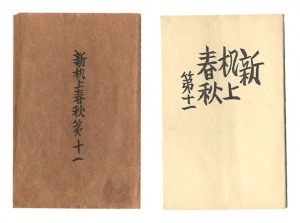 新机上春秋第十一
新
机上
春秋
第十一